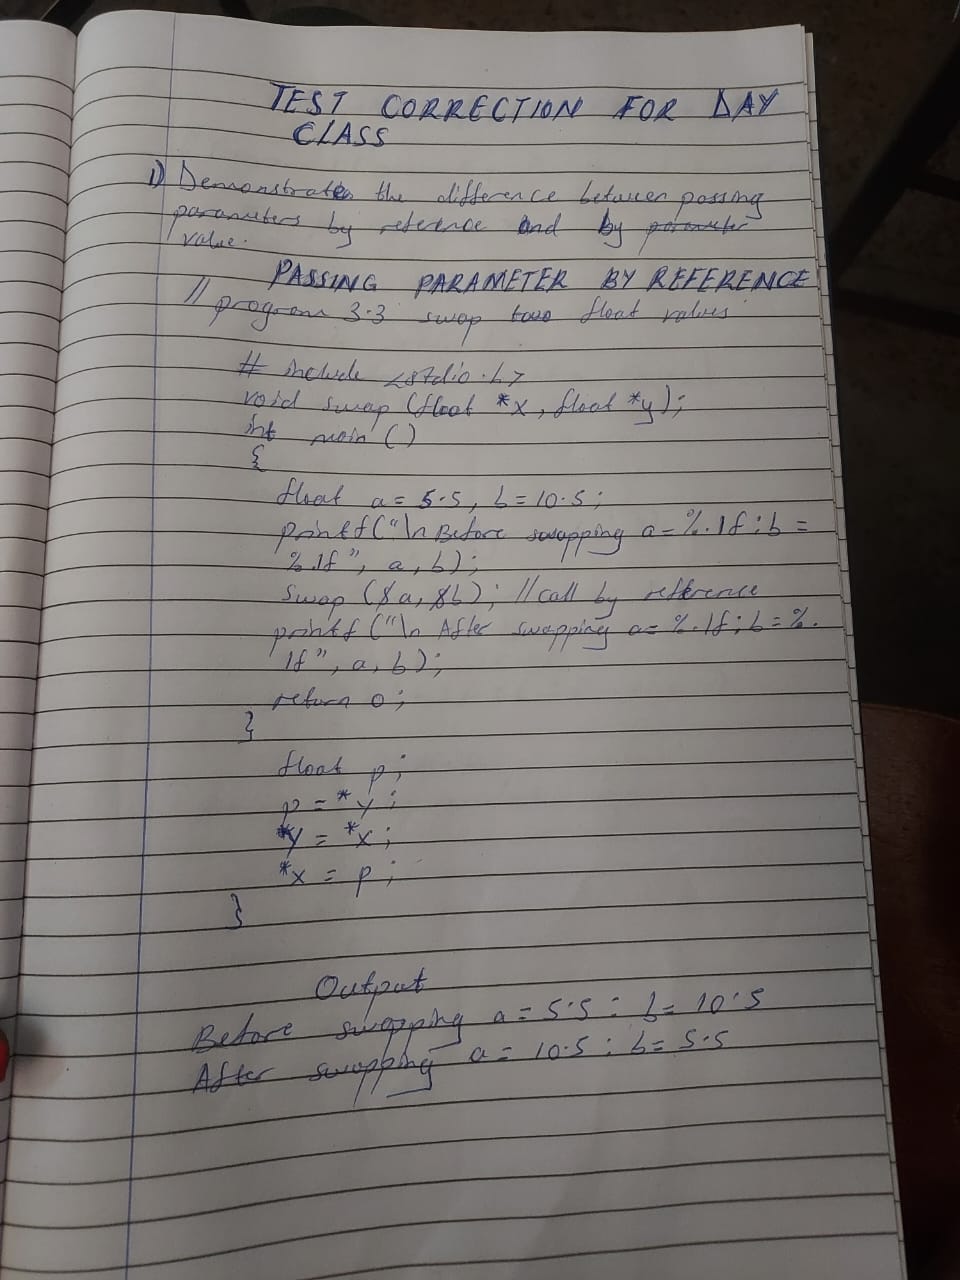 TEST CORRECTION FOR DAY
CLASS
1) Demonstrates the difference between passing
parameters by reference and by parameter
value.
PASSING PARAMETER BY REFERENCE
// program 3.3 swap two float values
# include <stdio.h>
void swap (float *x, float *y);
int main ()
{
float a = 5.5, b = 10.5;
printf("\n Before swapping a = %.1f : b =
%.1f", a, b);
Swap (&a, &b); // call by reference
printf ("\n After swapping a = %.1f; b = %.
1f", a, b);
return 0;
}
float p;
p = *y;
*y = *x;
*x = p;
}
Output
Before swapping a = 5.5 : b = 10.5
After swapping a = 10.5 : b = 5.5